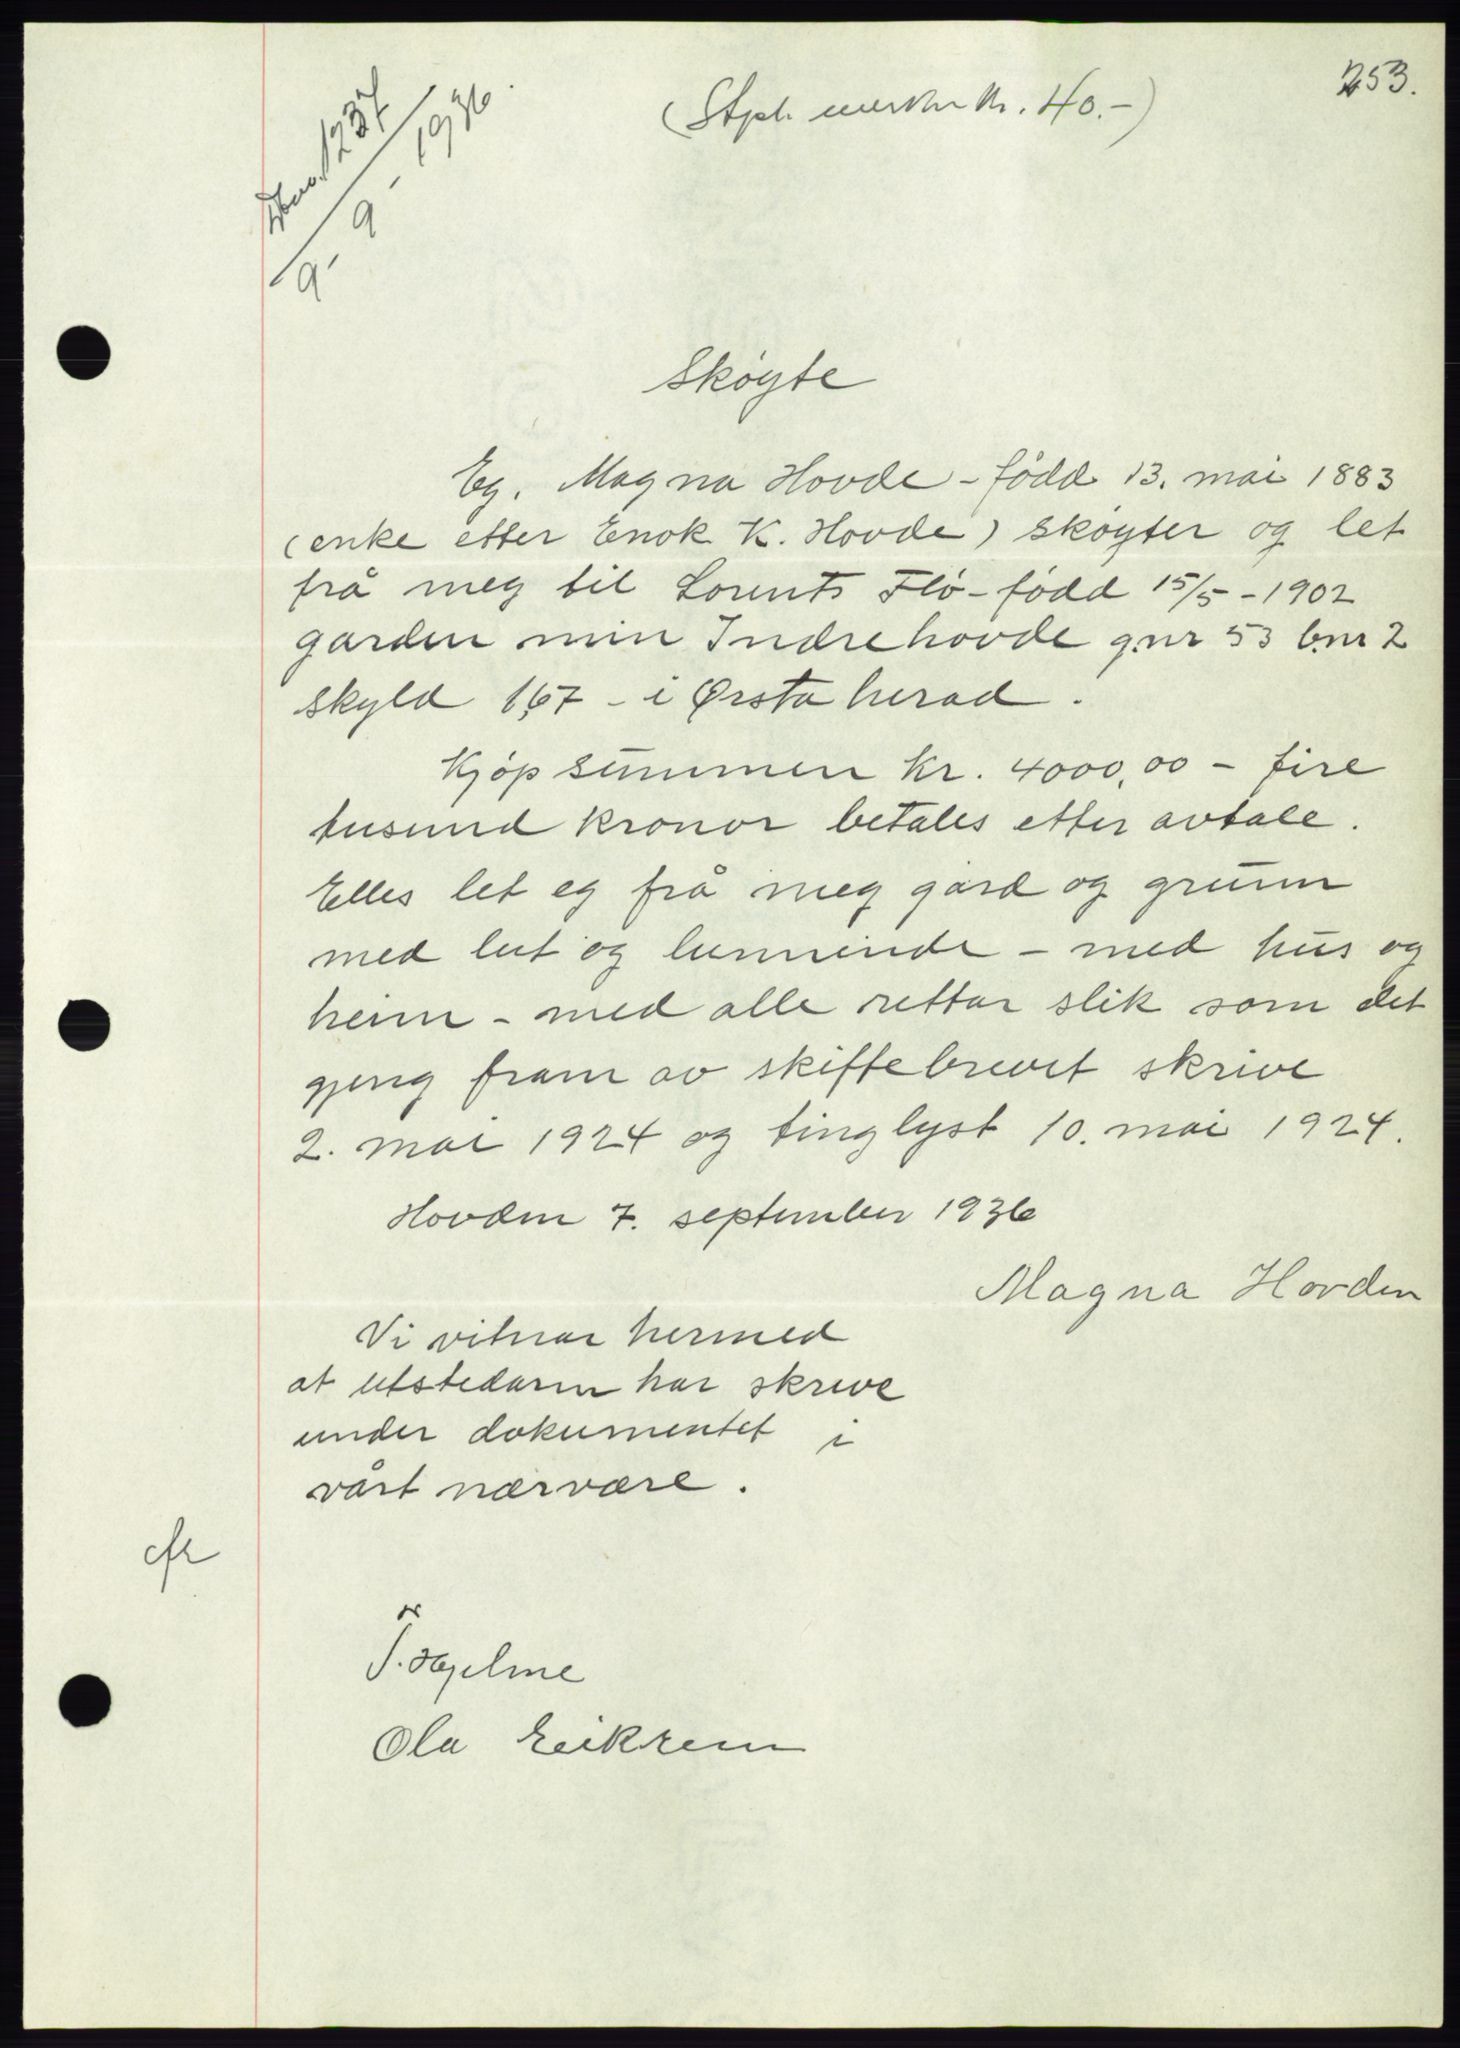 253.
(Stpl. merker kr. 40.-)
Dnr. 1237
9 - 9 - 1936.
Skøyte
Eg, Magna Hovde - fødd 13. mai 1883
(enke etter Enok K. Hovde) skøyter og let
frå meg til Lorents Flø - fødd 15/5 - 1902
garden min Indrehovde g.nr 53 b.nr 2
skyld 1,67 - i Ørsta herad.
Kjøpsummen kr. 4000,00 - fire
tusund kronor betales etter avtale.
Elles let eg frå meg gard og grunn
med lut og lunnende - med hus og
heim - med alle rettar slik som det
gjeng fram av skiftebrevet skrive
2. mai 1924 og tinglyst 10. mai 1924.
Hovden 7. september 1936
Magna Hovden
Vi vitnar hermed
at utstedaren har skrive
under dokumentet i
vårt nærvære.
cfr
Hjelme
Ola Eikrem